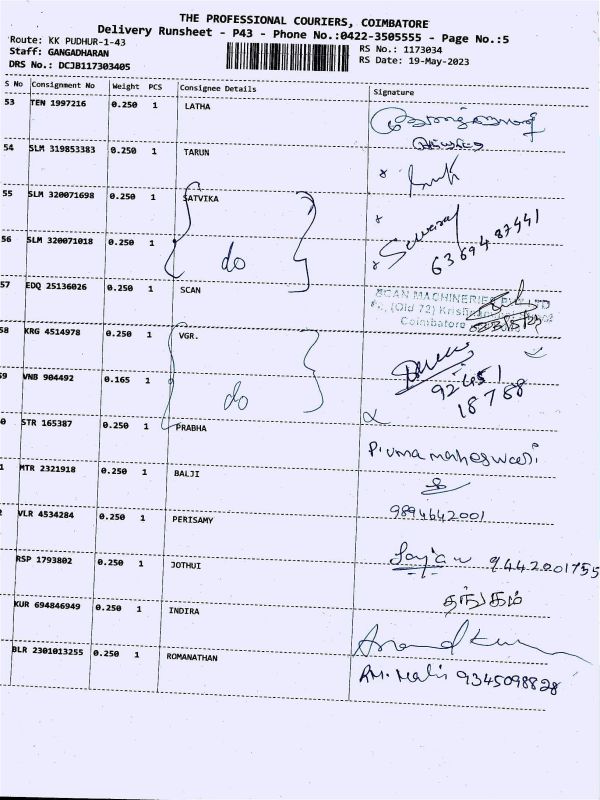 THE PROFESSIONAL COURIERS, COIMBATORE
Delivery Runsheet - P43 - Phone No.:0422-3505555 - Page No.:5
Route: KK PUDHUR-1-43
RS No.: 1173034
Staff: GANGADHARAN
RS Date: 19-May-2023
DRS No.: DCJB117303405
S No Consignment No Weight PCS Consignee Details Signature
53 TEN 1997216 0.250 1 LATHA
54 SLM 319853383 0.250 1 TARUN
55 SLM 320071698 0.250 1 SATVIKA
6369487441
56 SLM 320071018 0.250 1 do
57 EDQ 25136026 0.250 1 SCAN
SCAN MACHINERIES PVT LTD
(Old 72)
Coimbatore
58 KRG 4514978 0.250 1 VGR.
9 VNB 904492 0.165 1 do
92451
18768
0 STR 165387 0.250 1 PRABHA
P. uma maheswari
1 MTR 2321918 0.250 1 BALJI
9894642001
2 VLR 4534284 0.250 1 PERISAMY
RSP 1793802 0.250 1 JOTHUI
9442001755
KUR 694846949 0.250 1 INDIRA
தங்கம்
Anand Kumar
BLR 2301013255 0.250 1 ROMANATHAN
RM. 9345098828